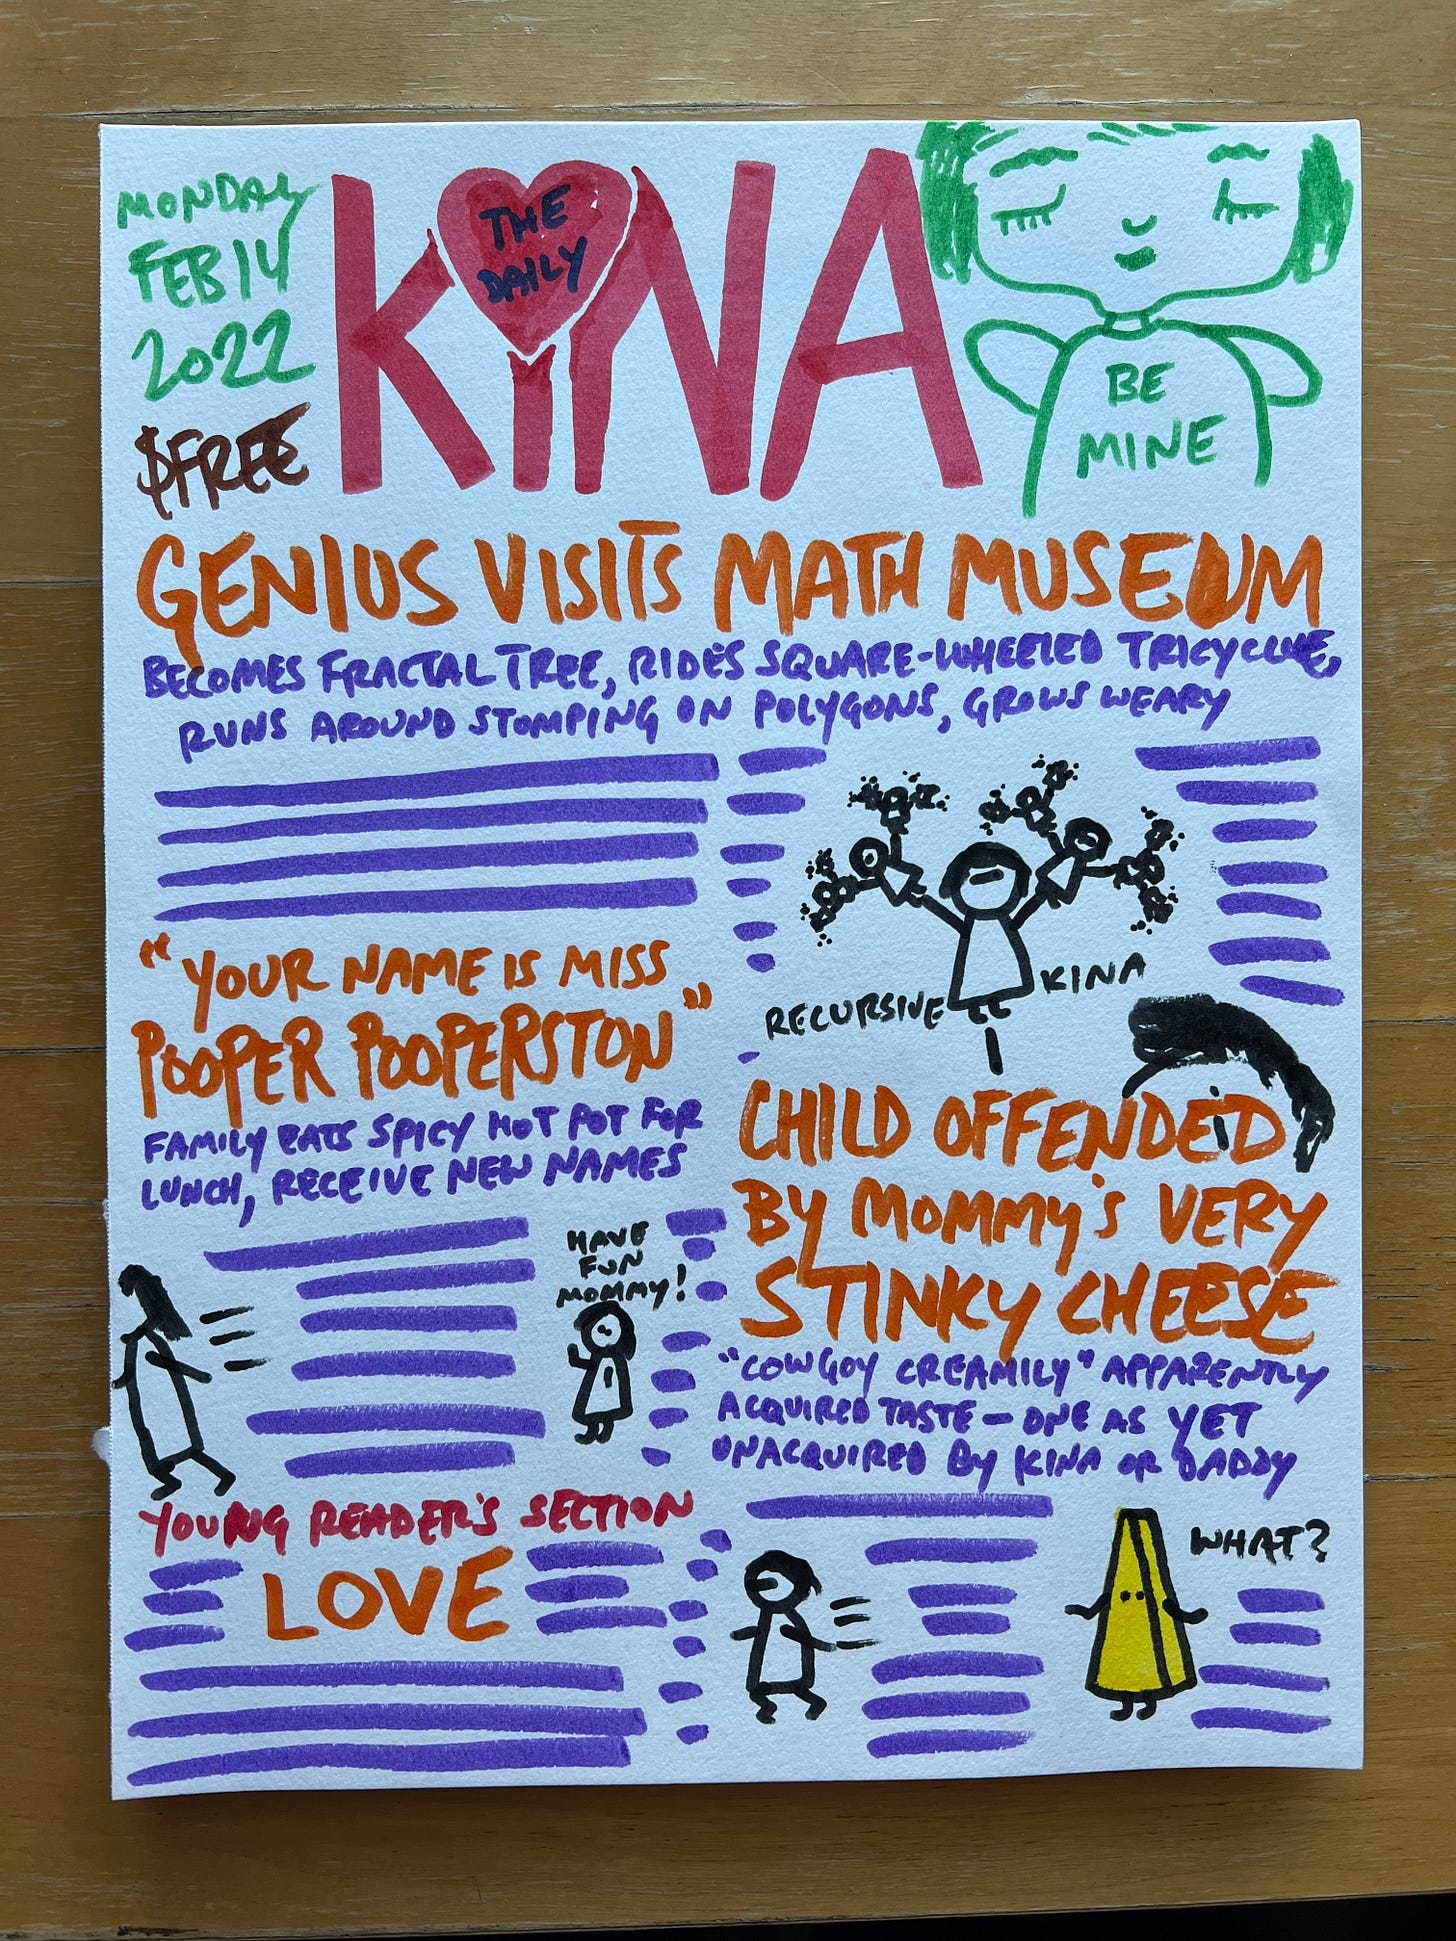 MONDAY
FEB 14
2022
$FREE
THE
DAILY
KINA
BE
MINE
GENIUS VISITS MATH MUSEUM
BECOMES FRACTAL TREE, RIDES SQUARE-WHEELED TRICYCLE,
RUNS AROUND STOMPING ON POLYGONS, GROWS WEARY
RECURSIVE KINA
"YOUR NAME IS MISS
POOPER POOPERSTON"
FAMILY EATS SPICY HOT POT FOR
LUNCH, RECEIVE NEW NAMES
HAVE
FUN
MOMMY!
CHILD OFFENDED
BY MOMMY'S VERY
STINKY CHEESE
"COWGOY CREAMILY" APPARENTLY
ACQUIRED TASTE - ONE AS YET
UNACQUIRED BY KINA OR DADDY
WHAT?
YOUNG READER'S SECTION
LOVE